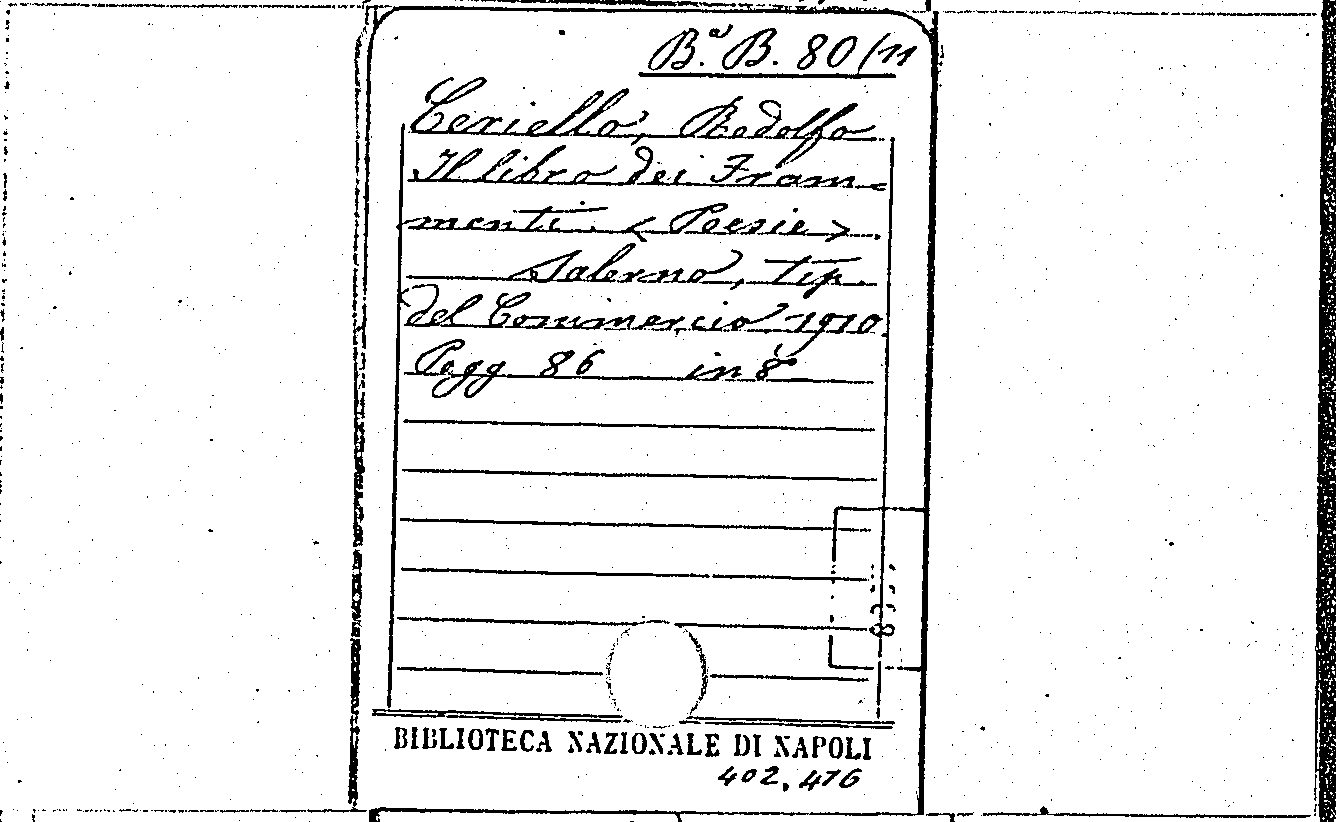 B.ª B. 80/11
Ceriello, Rodolfo
Il libro dei Fram=
menti. < Poesie >.
Salerno, tip.
del Commercio 1910.
Pagg 86 in 8°
BIBLIOTECA NAZIONALE DI NAPOLI
402.476